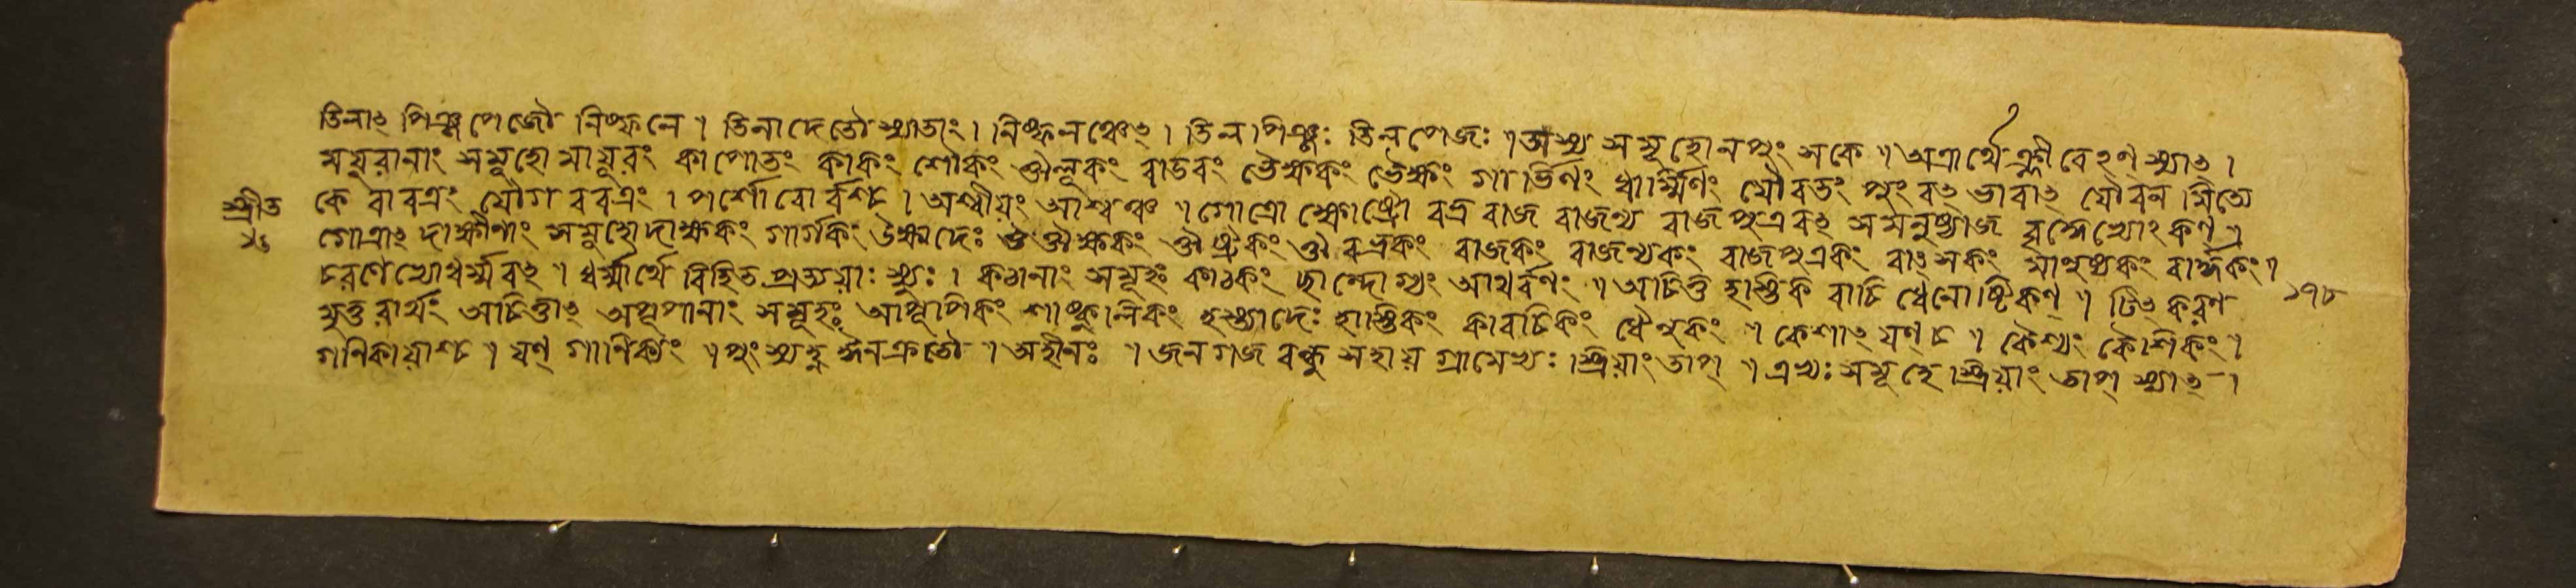 তিলাৎ পিঞ্জপেজৌ নিষ্ফলে । তিলাদেতৌ স্যাতাং । নিষ্ফলশ্চেৎ । তিলপিঞ্জঃ তিলপেজঃ ॥ অস্য সমূহোনপুংসকে ॥ অত্রার্থে ক্লীবেঽণ্ স্যাৎ ।
ময়ূরানাং সমূহো মায়ূরং কাপোতং কাকং শৌকং ঔলূকং বাডবং ভৈক্ষকং ভৈক্ষং গার্ভিণং ধার্ম্মিণং যৌবতং পুংবৎ ভাবাৎ যৌবনমিত্যে
কে বাবত্রং যৌগবরত্রং । পর্শো র্বশ্চ । অশ্বীয়ং আশ্বঞ্চ ॥ গোত্রোক্ষোষ্ট্রো রভ্র রাজ রাজন্য রাজপুত্র বৎস মনুষ্যাজ বৃদ্ধেভ্যোঽকণ্ ॥
গোত্রাৎ দাক্ষীণাং সমূহো দাক্ষকং গার্গকং উক্ষাদেঃ ঔক্ষকং ঔষ্ট্রকং ঔরভ্রকং রাজকং রাজন্যকং রাজপুত্রকং বাৎসকং মানুষ্যকং বার্দ্ধকং ॥
চরণেভ্যো ধর্ম্মবৎ ॥ ধর্ম্মার্থে বিহিত প্রত্যয়াঃ স্যুঃ । কঠানাং সমূহঃ কাঠকং ছান্দোগ্যং আথর্বণং ॥ অচিত্ত হস্তি কবচি ধেনোষ্টিকণ্ ॥ টিৎকরণ
মুত্তরার্থং অচিত্তাৎ অপূপানাং সমূহঃ আপূপিকং শাষ্কুলিকং হস্ত্যাদেঃ হাস্তিকং কাবচিকং ধৈনুকং ॥ কেশাৎ যণ্ চ ॥ কৈশ্যং কৈশিকং ।
গণিকায়াশ্চ ॥ যণ্ গাণিক্যং ॥ পুংস্যহ্ন ঈনক্রতৌ ॥ অহীনঃ ॥ জন গজ বন্ধু সহায় গ্রামেভ্যঃ স্ত্রিয়াং তাপ্ ॥ এভ্যঃ সমূহে স্ত্রিয়াং তাপ্ স্যাৎ ।
শ্রীত
১৭৮